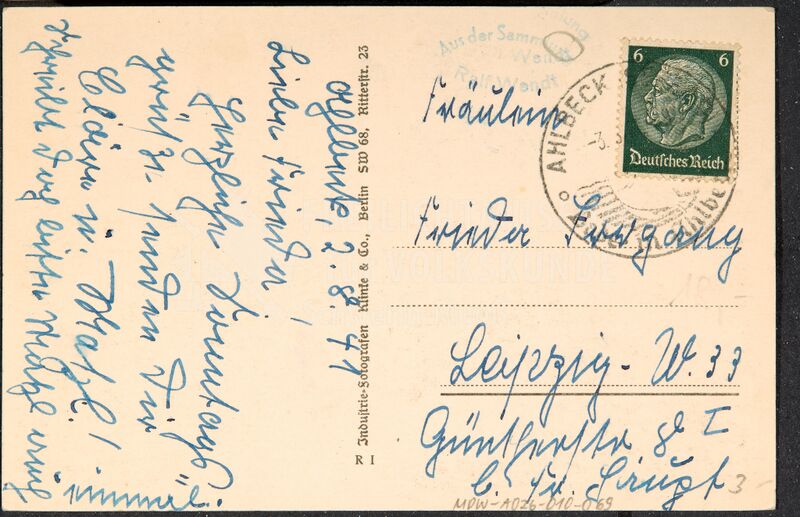 Ahlbeck, 2.8.41
Liebe Frieda!
Herzliche Sonntags-
grüße senden Dir
Cläre u.
Schreibe doch bitte auch
einmal
Industrie-Fotografen Klinke & Co., Berlin SW 68, Ritterstr. 23
R I
Aus der Sammlung
Wendt
Ralf Wendt
6 6
Deutsches Reich
AHLBECK
Fräulein
Frieda
Leipzig-W. 33
Güntherstr 8 I
b. Fr.
3-
MDW-AD26-010-069